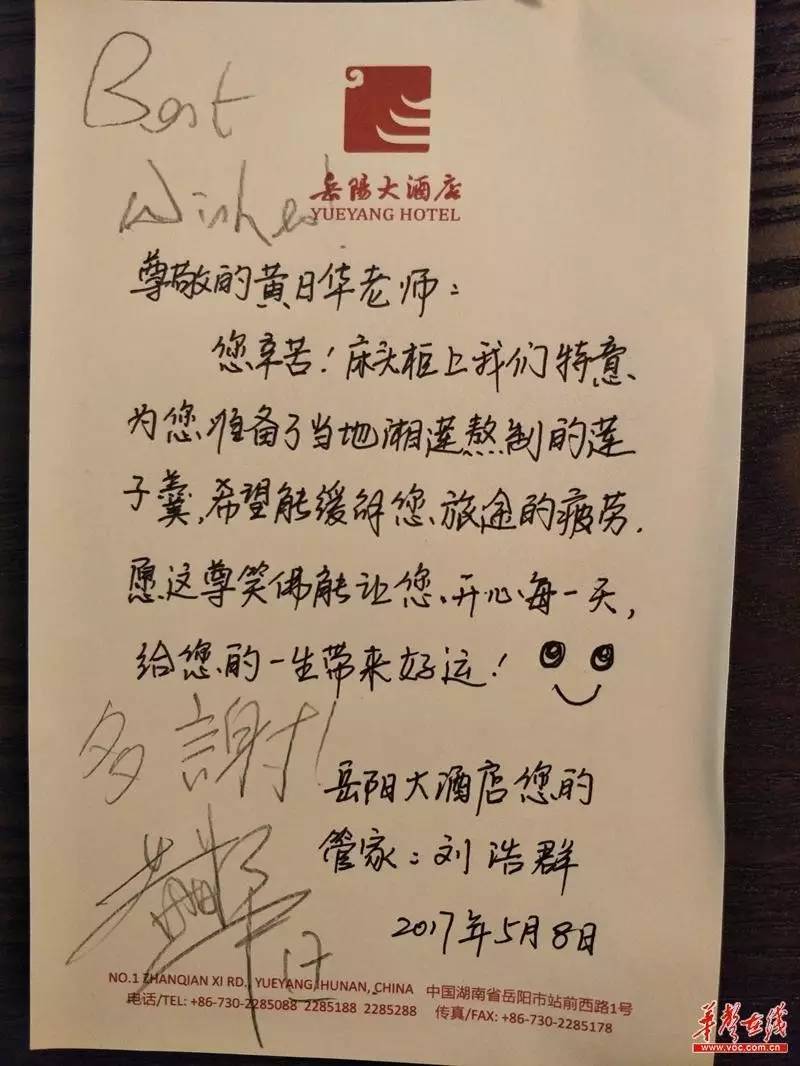 Best
Wishes
岳陽大酒店
YUEYANG HOTEL
尊敬的黄日华老师：
您辛苦！床头柜上我们特意
为您准备了当地湘莲熬制的莲
子羹，希望能缓解您旅途的疲劳.
愿这尊笑佛能让您开心每一天，
给您的一生带来好运！
多謝!
岳阳大酒店您的
管家：刘浩群
2017年5月8日
17
NO.1 ZHANQIAN XI RD., YUEYANG, HUNAN, CHINA 中国湖南省岳阳市站前西路1号
电话/TEL: +86-730-2285088 2285188 2285288 传真/FAX: +86-730-2285178
华声在线
www.voc.com.cn